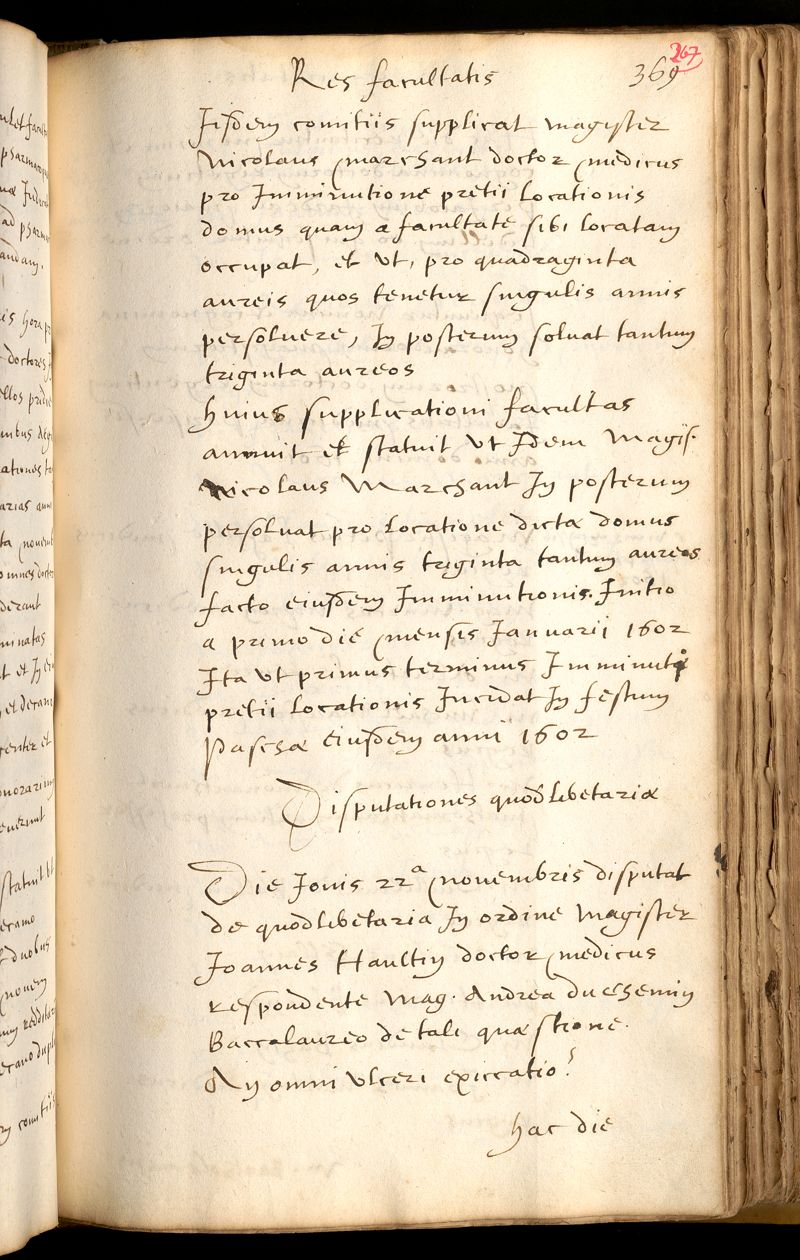 Res facultatis
369
267
Iisdem comitiis supplicat magister
Nicolaus marchant doctor medicus
pro Imminutione pretii locationis
domus quam a facultate sibi locatam
occupat, et vt, pro quadraginta
aureis quos tenetur singulis annis
persoluere, In posterum soluat tantum
triginta aureos
huius supplicationi facultas
annuit et statuit vt Idem Magis.
Nicolaus Marchant In posterum
persoluat pro locatione dictæ domus
singulis annis triginta tantum aureos
facto eiusdem Imminutionis. Initio
a primo die mensis Ianuarii 1602
Ita vt primus terminus Imminuti
pretii locationis Incidat In festum
Paschæ eiusdem anni 1602
Disputationes quodlibetariæ
Die Iouis 22ª nouembris disputat
de quodlibetaria In ordine magister
Ioannes Haultin doctor medicus
respondente Mag. Andrea duchemin
Baccalaureo de tali quæstione.
An omni vlceri exiccatio?
hac die